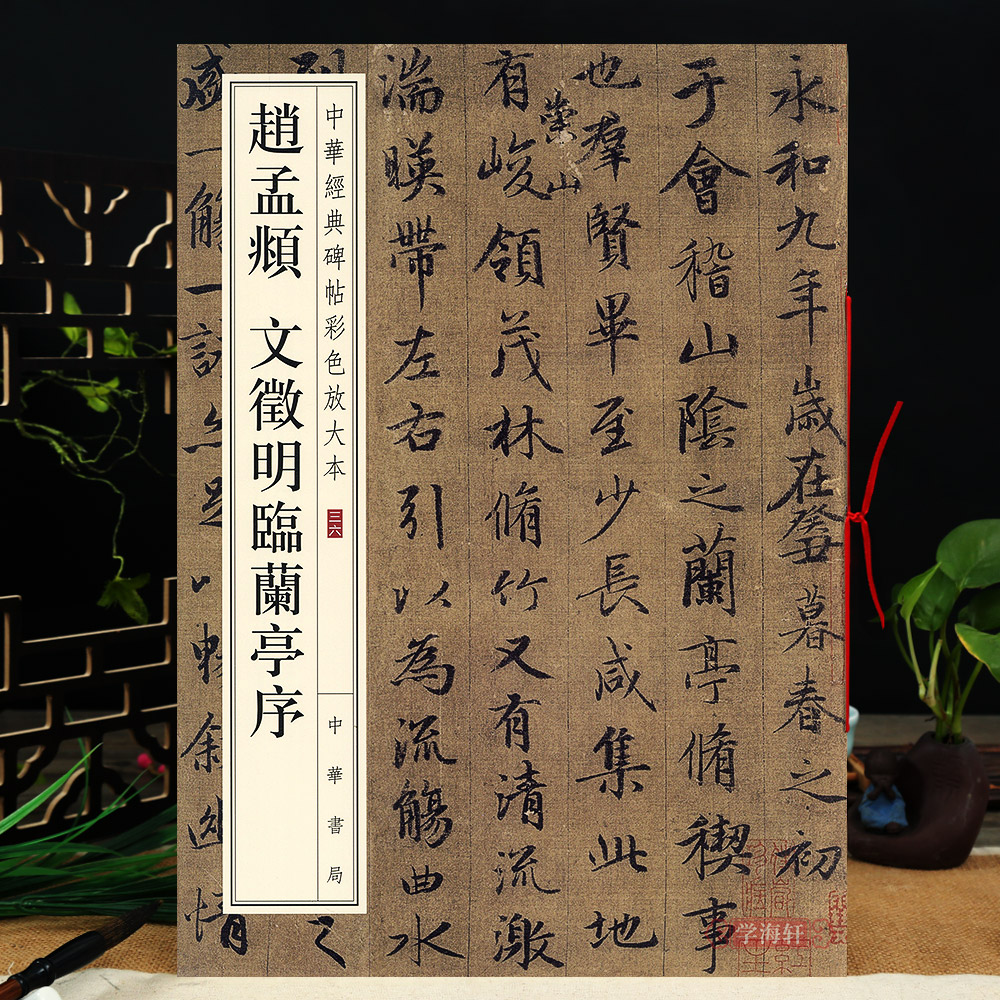 永和九年歲在癸丑暮春之初
于會稽山陰之蘭亭脩稧事
也羣賢畢至少長咸集此地
有崇山峻領茂林脩竹又有清流激
湍暎帶左右引以為流觴曲水
列
之
盛一觴一詠亦足以暢叙幽情
中華經典碑帖彩色放大本
三六
中華書局
趙孟頫 文徵明臨蘭亭序
学海轩